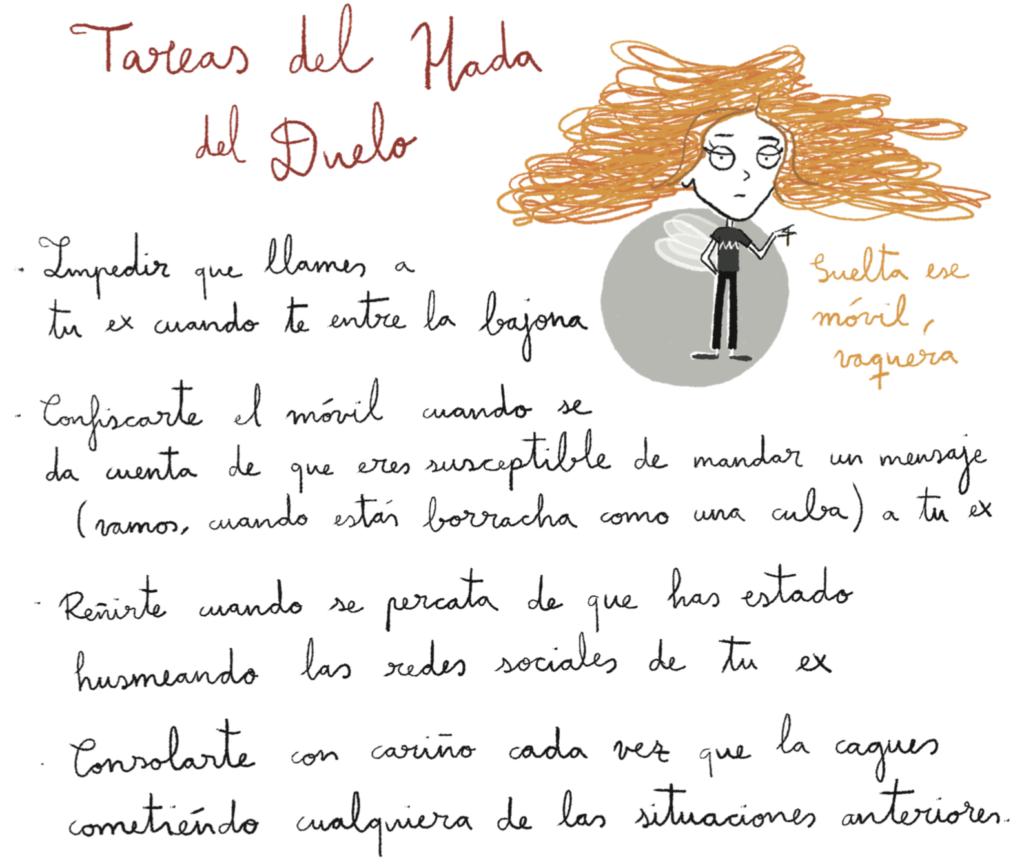 Tareas del Hada
del Duelo
· Impedir que llames a
tu ex cuando te entre la bajona
Suelta ese
móvil,
vaquera
· Confiscarte el móvil cuando se
da cuenta de que eres susceptible de mandar un mensaje
(vamos, cuando estás borracha como una cuba) a tu ex
· Reñirte cuando se percata de que has estado
husmeando las redes sociales de tu ex
· Consolarte con cariño cada vez que la cagues
cometiéndo cualquiera de las situaciones anteriores.